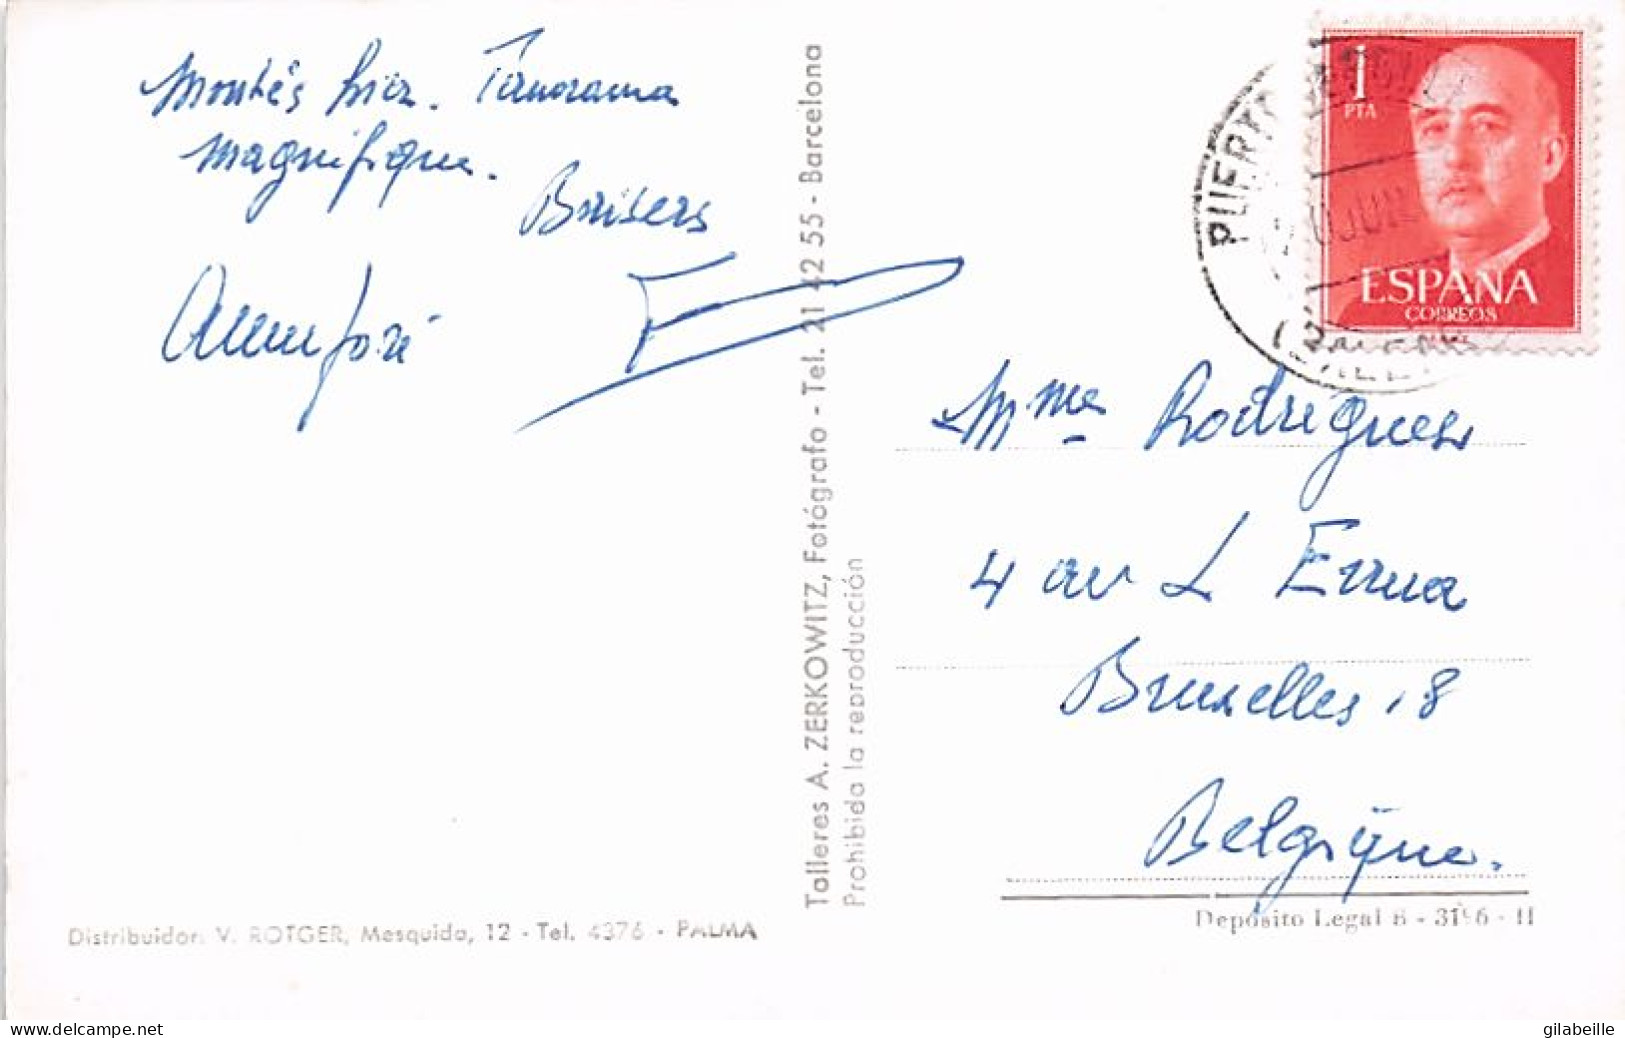 Montés hier. Panorama
magnifique.
Baisers
Talleres A. ZERKOWITZ, Fotógrafo - Tel. 21 42 55 - Barcelona
Prohibida la reproducción
Distribuidor: V. ROTGER, Mesquida, 12 - Tel. 4376 - PALMA
1
PTA
ESPAÑA
CORREOS
PUERTO
JUN
Mme Rodrigues
4 av L Errera
Bruxelles 18
Belgique.
Depósito Legal B - - II
delcampe.net
gilabeille